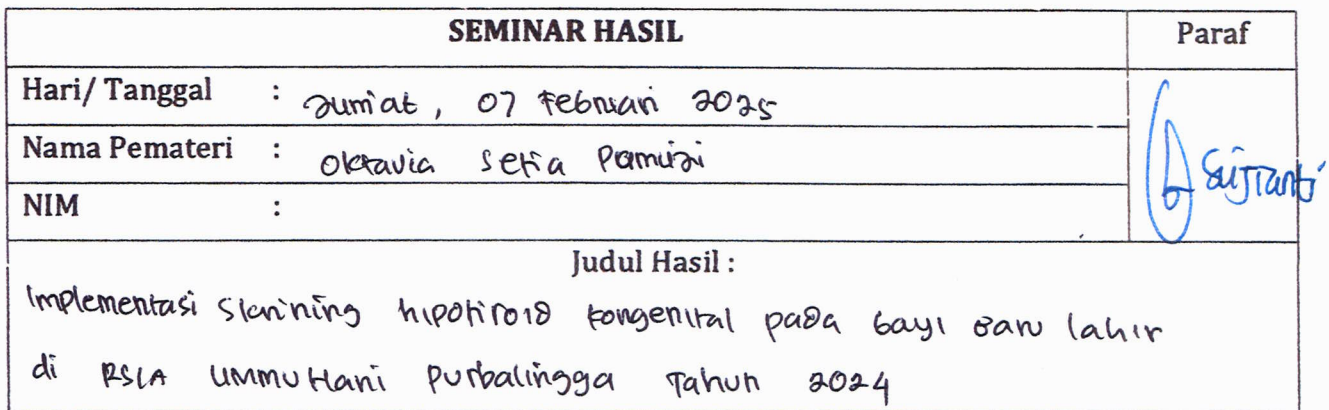 SEMINAR HASIL Paraf
Hari/ Tanggal : Jum'at, 07 Februari 2025
Nama Pemateri : Oktavia Setia
NIM :
Judul Hasil :
Implementasi Skrining hipotiroid kongenital pada bayi baru lahir
di RSIA UMMU Hani Purbalingga Tahun 2024